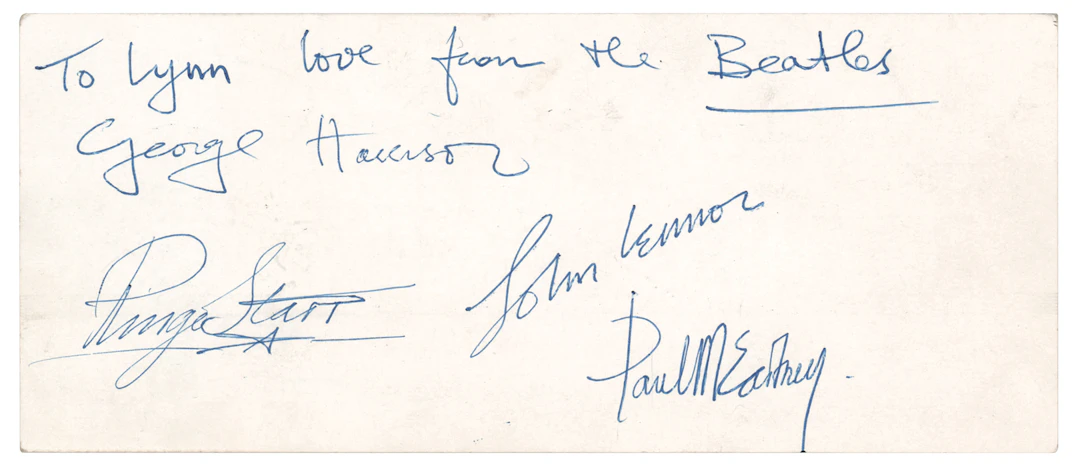 To Lynn love from the Beatles
George Harrison
Ringo Starr
John Lennon
Paul McCartney